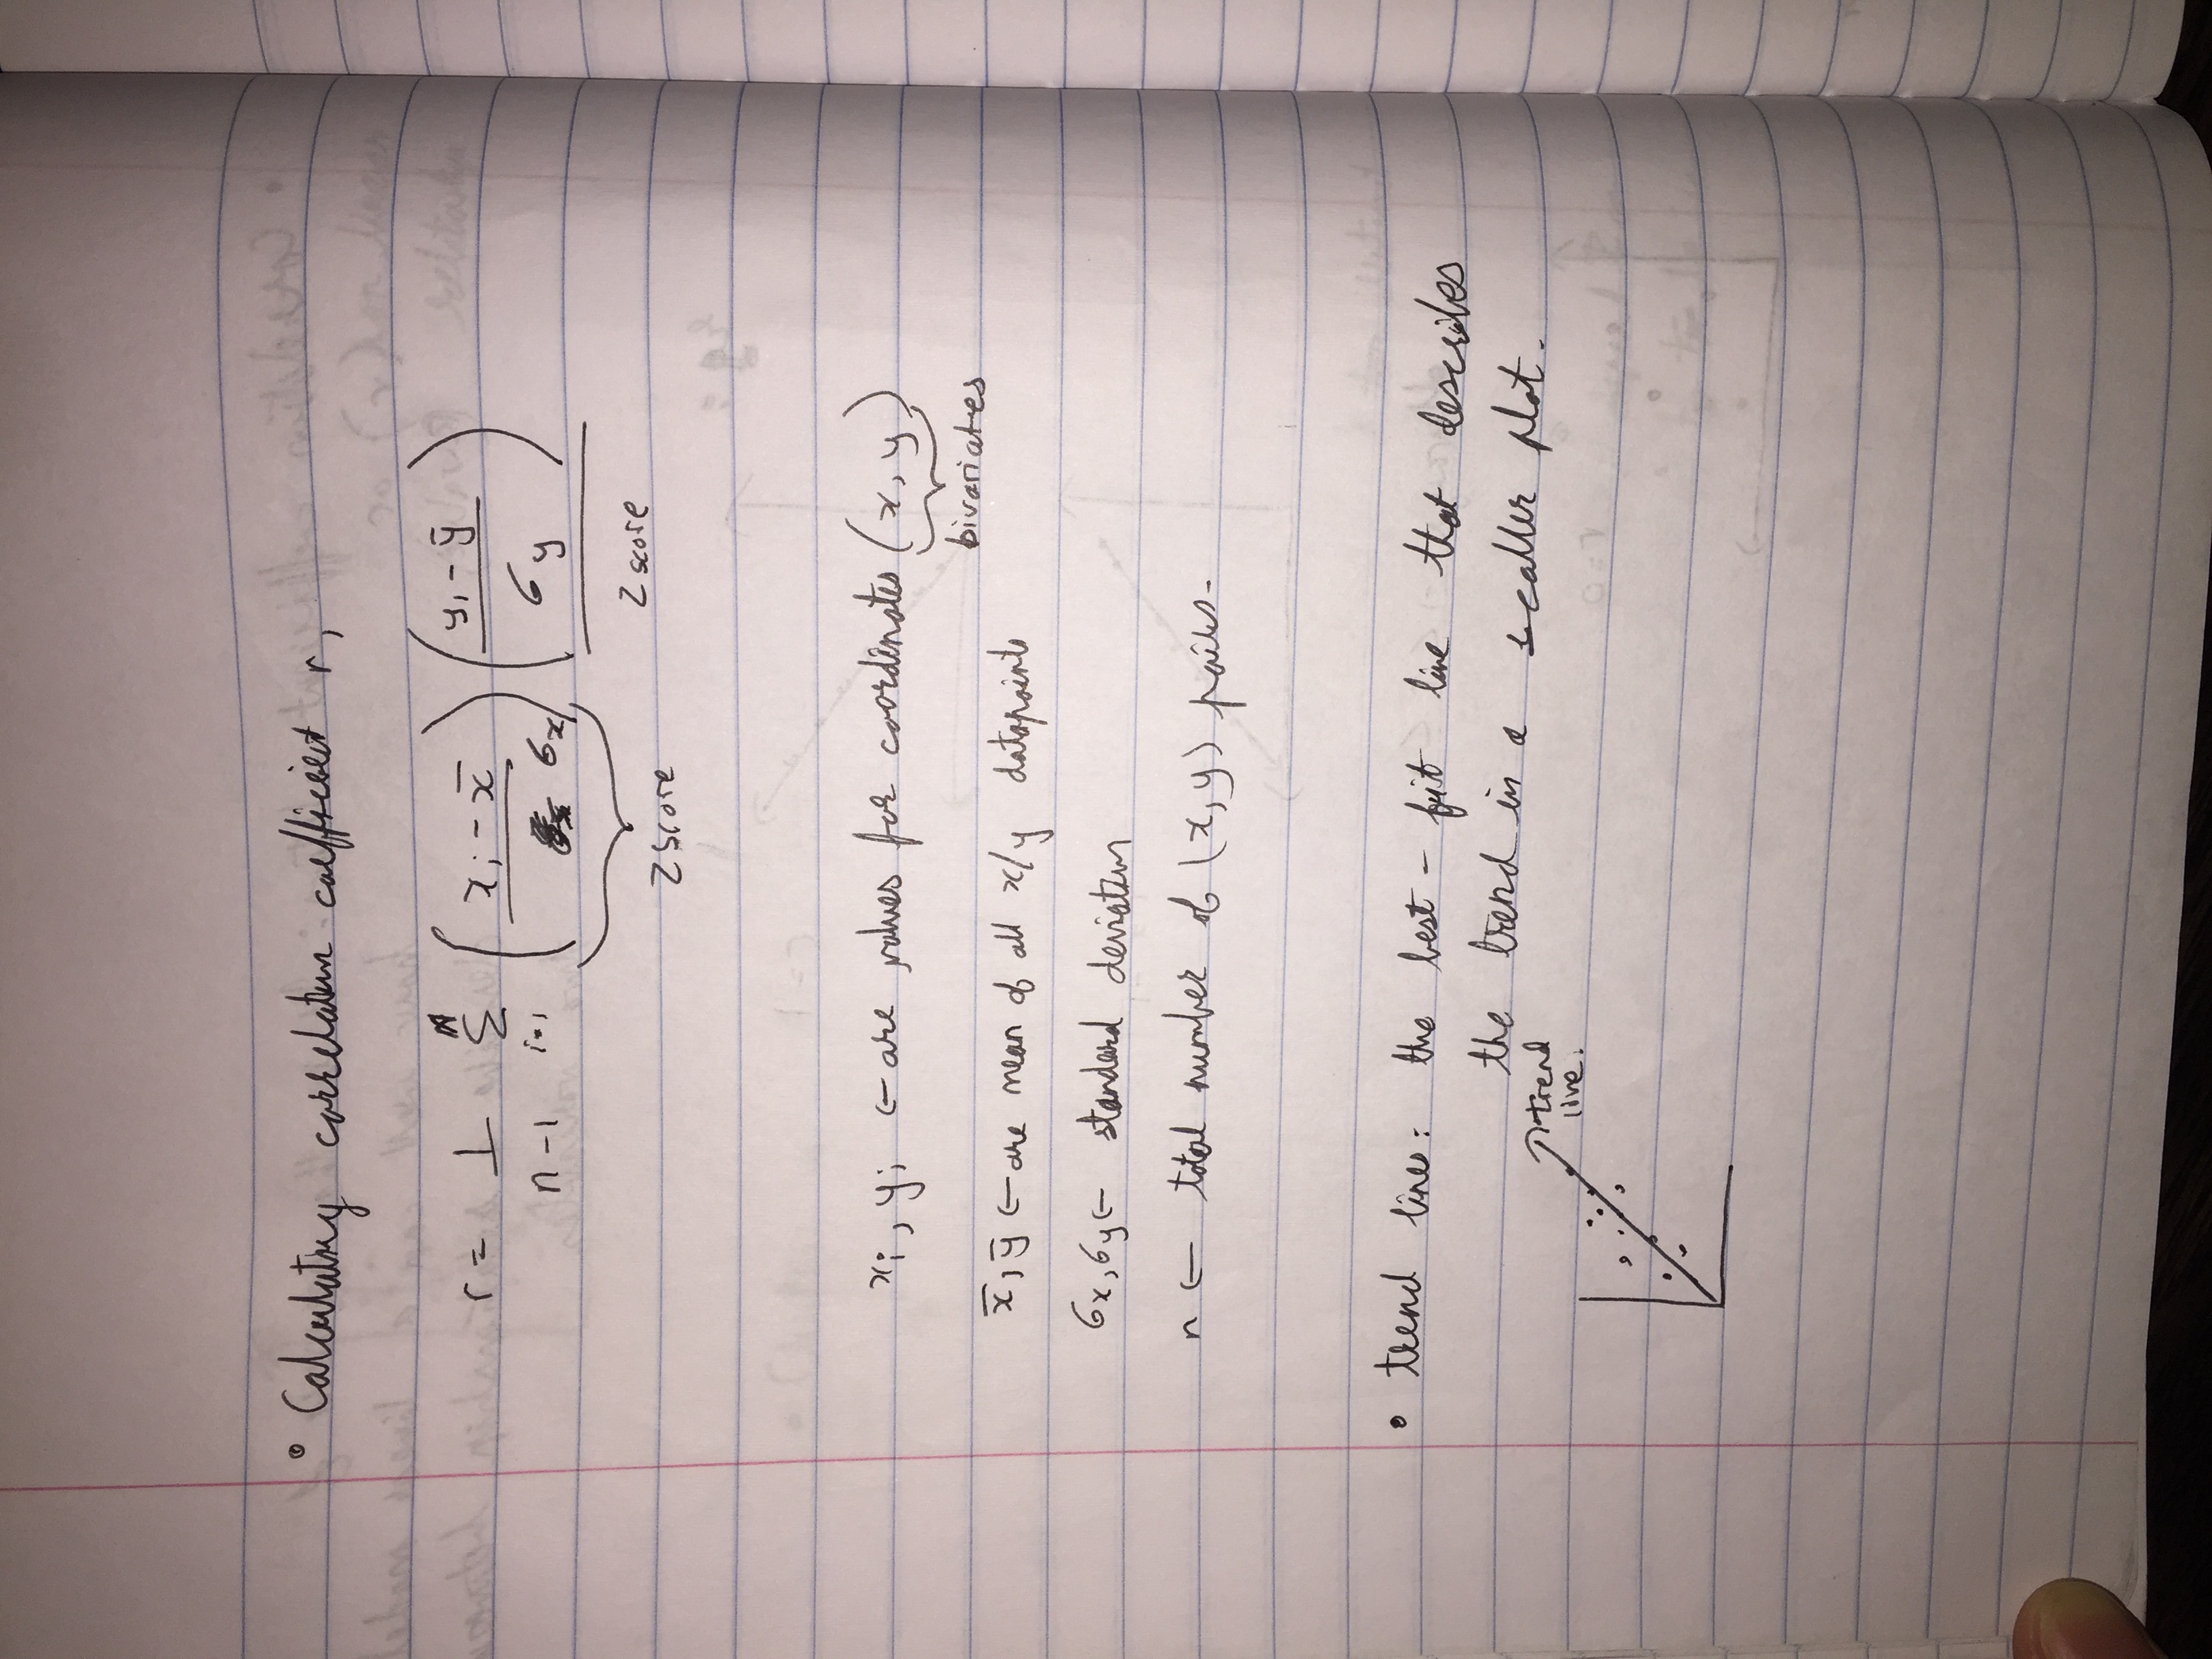 • Calculating correlation coefficient r,
r = 1/(n-1) n Σ i=1 ( (xi - x̄) / 6x ) ( (yi - ȳ) / 6y )
Z score
Z score
xi, yi ← are values for coordinates (x, y)
bivariates
x̄, ȳ ← are mean of all x/y datapoints
6x, 6y ← standard deviation
n ← total number of (x, y) pairs.
• trend lines: the best - fit line that describes
the trend in a scatter plot.
trend
line.